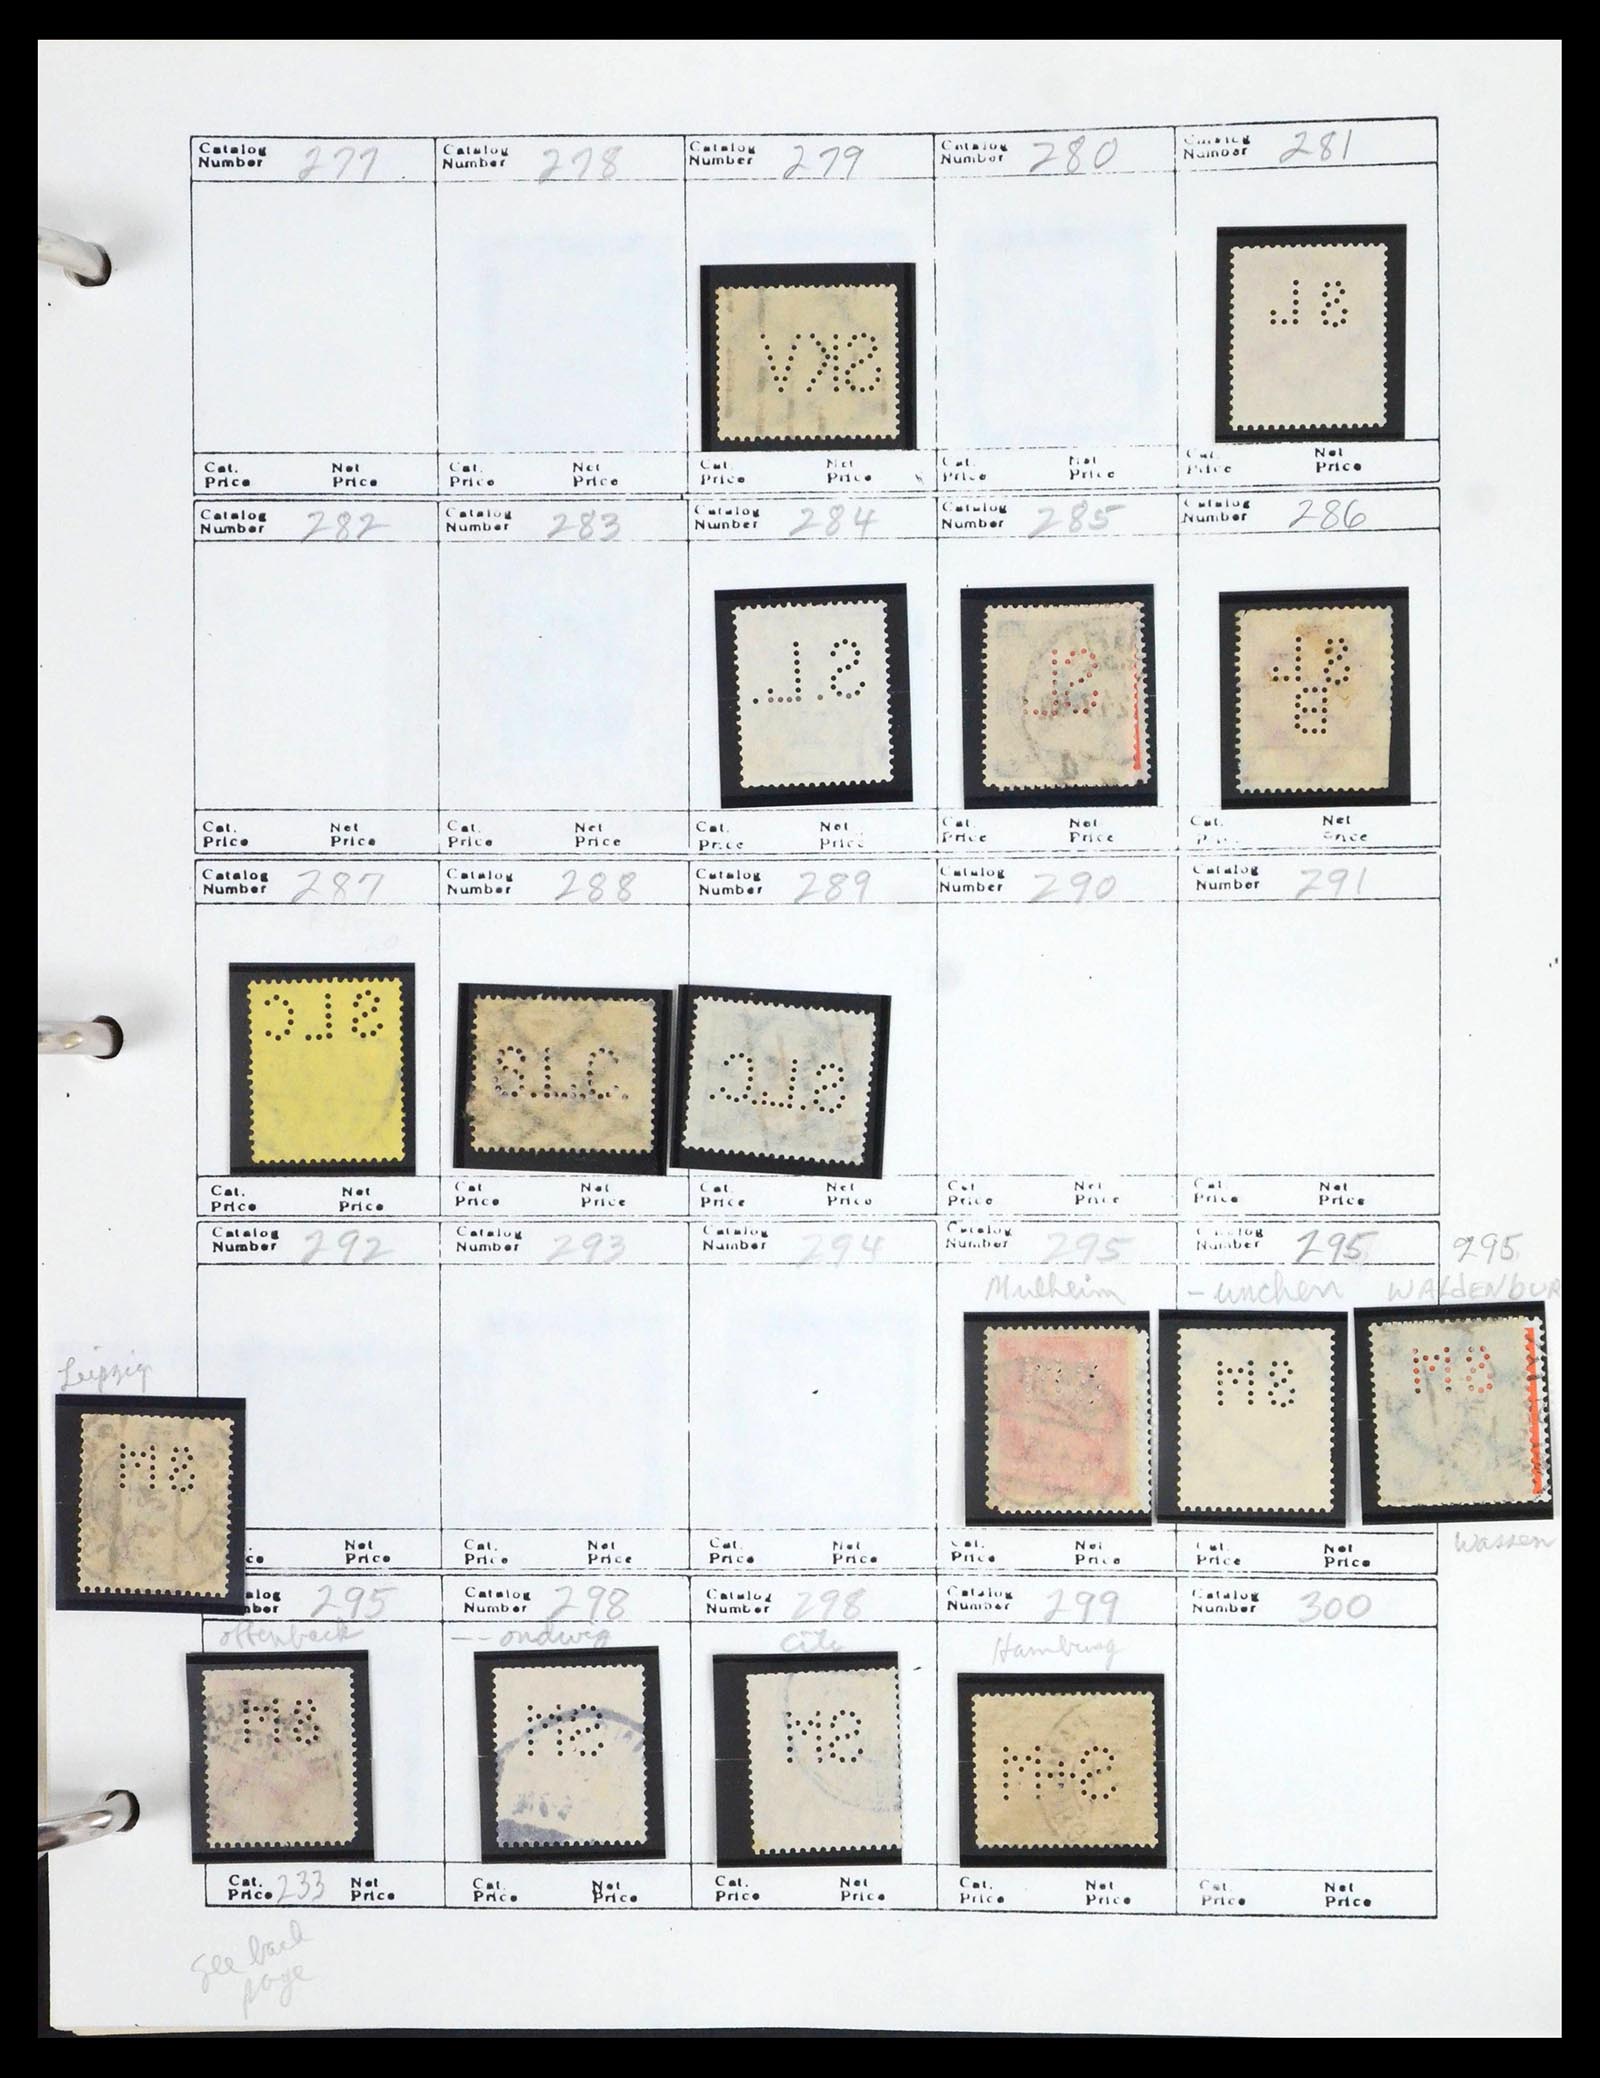 Catalog Number 277 Catalog Number 278 Catalog Number 279 Catalog Number 280 Catalog Number 281
Cat. Price Net Price Cat. Price Net Price Cat. Price Net Price Cat. Price Net Price Cat. Price Net Price
Catalog Number 282 Catalog Number 283 Catalog Number 284 Catalog Number 285 Catalog Number 286
Cat. Price Net Price Cat. Price Net Price Cat. Price Net Price Cat. Price Net Price Cat. Price Net Price
Catalog Number 287 Catalog Number 288 Catalog Number 289 Catalog Number 290 Catalog Number 291
S.L.C.
Cat. Price Net Price Cat Price Net Price Cat. Price Net Price Cat Price Net Price Cat. Price Net Price
Catalog Number 292 Catalog Number 293 Catalog Number 294 Catalog Number 295 Catalog Number 295 295
Mulheim -unchen WALdENbUR
Leipzig
Price Net Price Cat. Price Net Price Cat. Price Net Price Cat. Price Net Price Cat. Price Net Price Wassen
Number 295 Catalog Number 298 Catalog Number 298 Catalog Number 299 Catalog Number 300
offenback --ondwig City Hamburg
Cat. Price 233 Net Price Cat. Price Net Price Cat. Price Net Price Cat. Price Net Price Cat. Price Net Price
See back
page